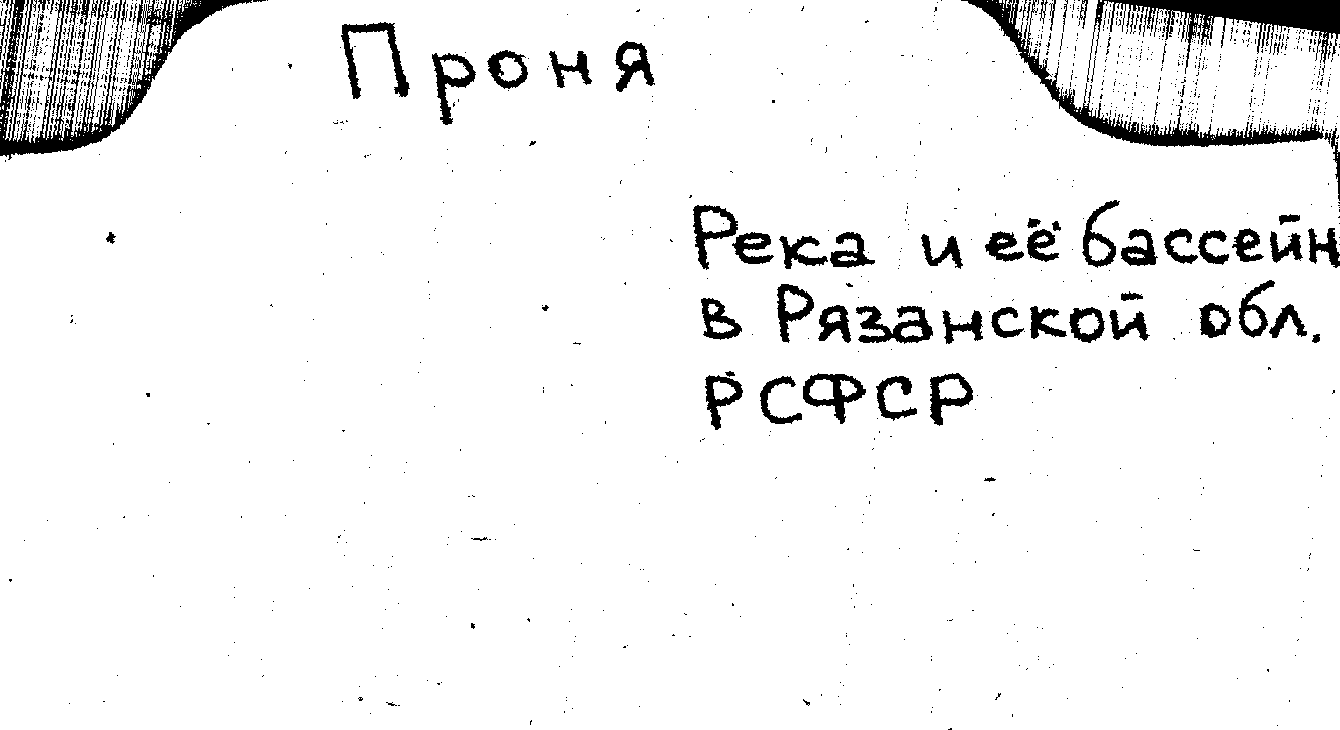 Проня
Река и её бассейн
в Рязанской обл.
РСФСР